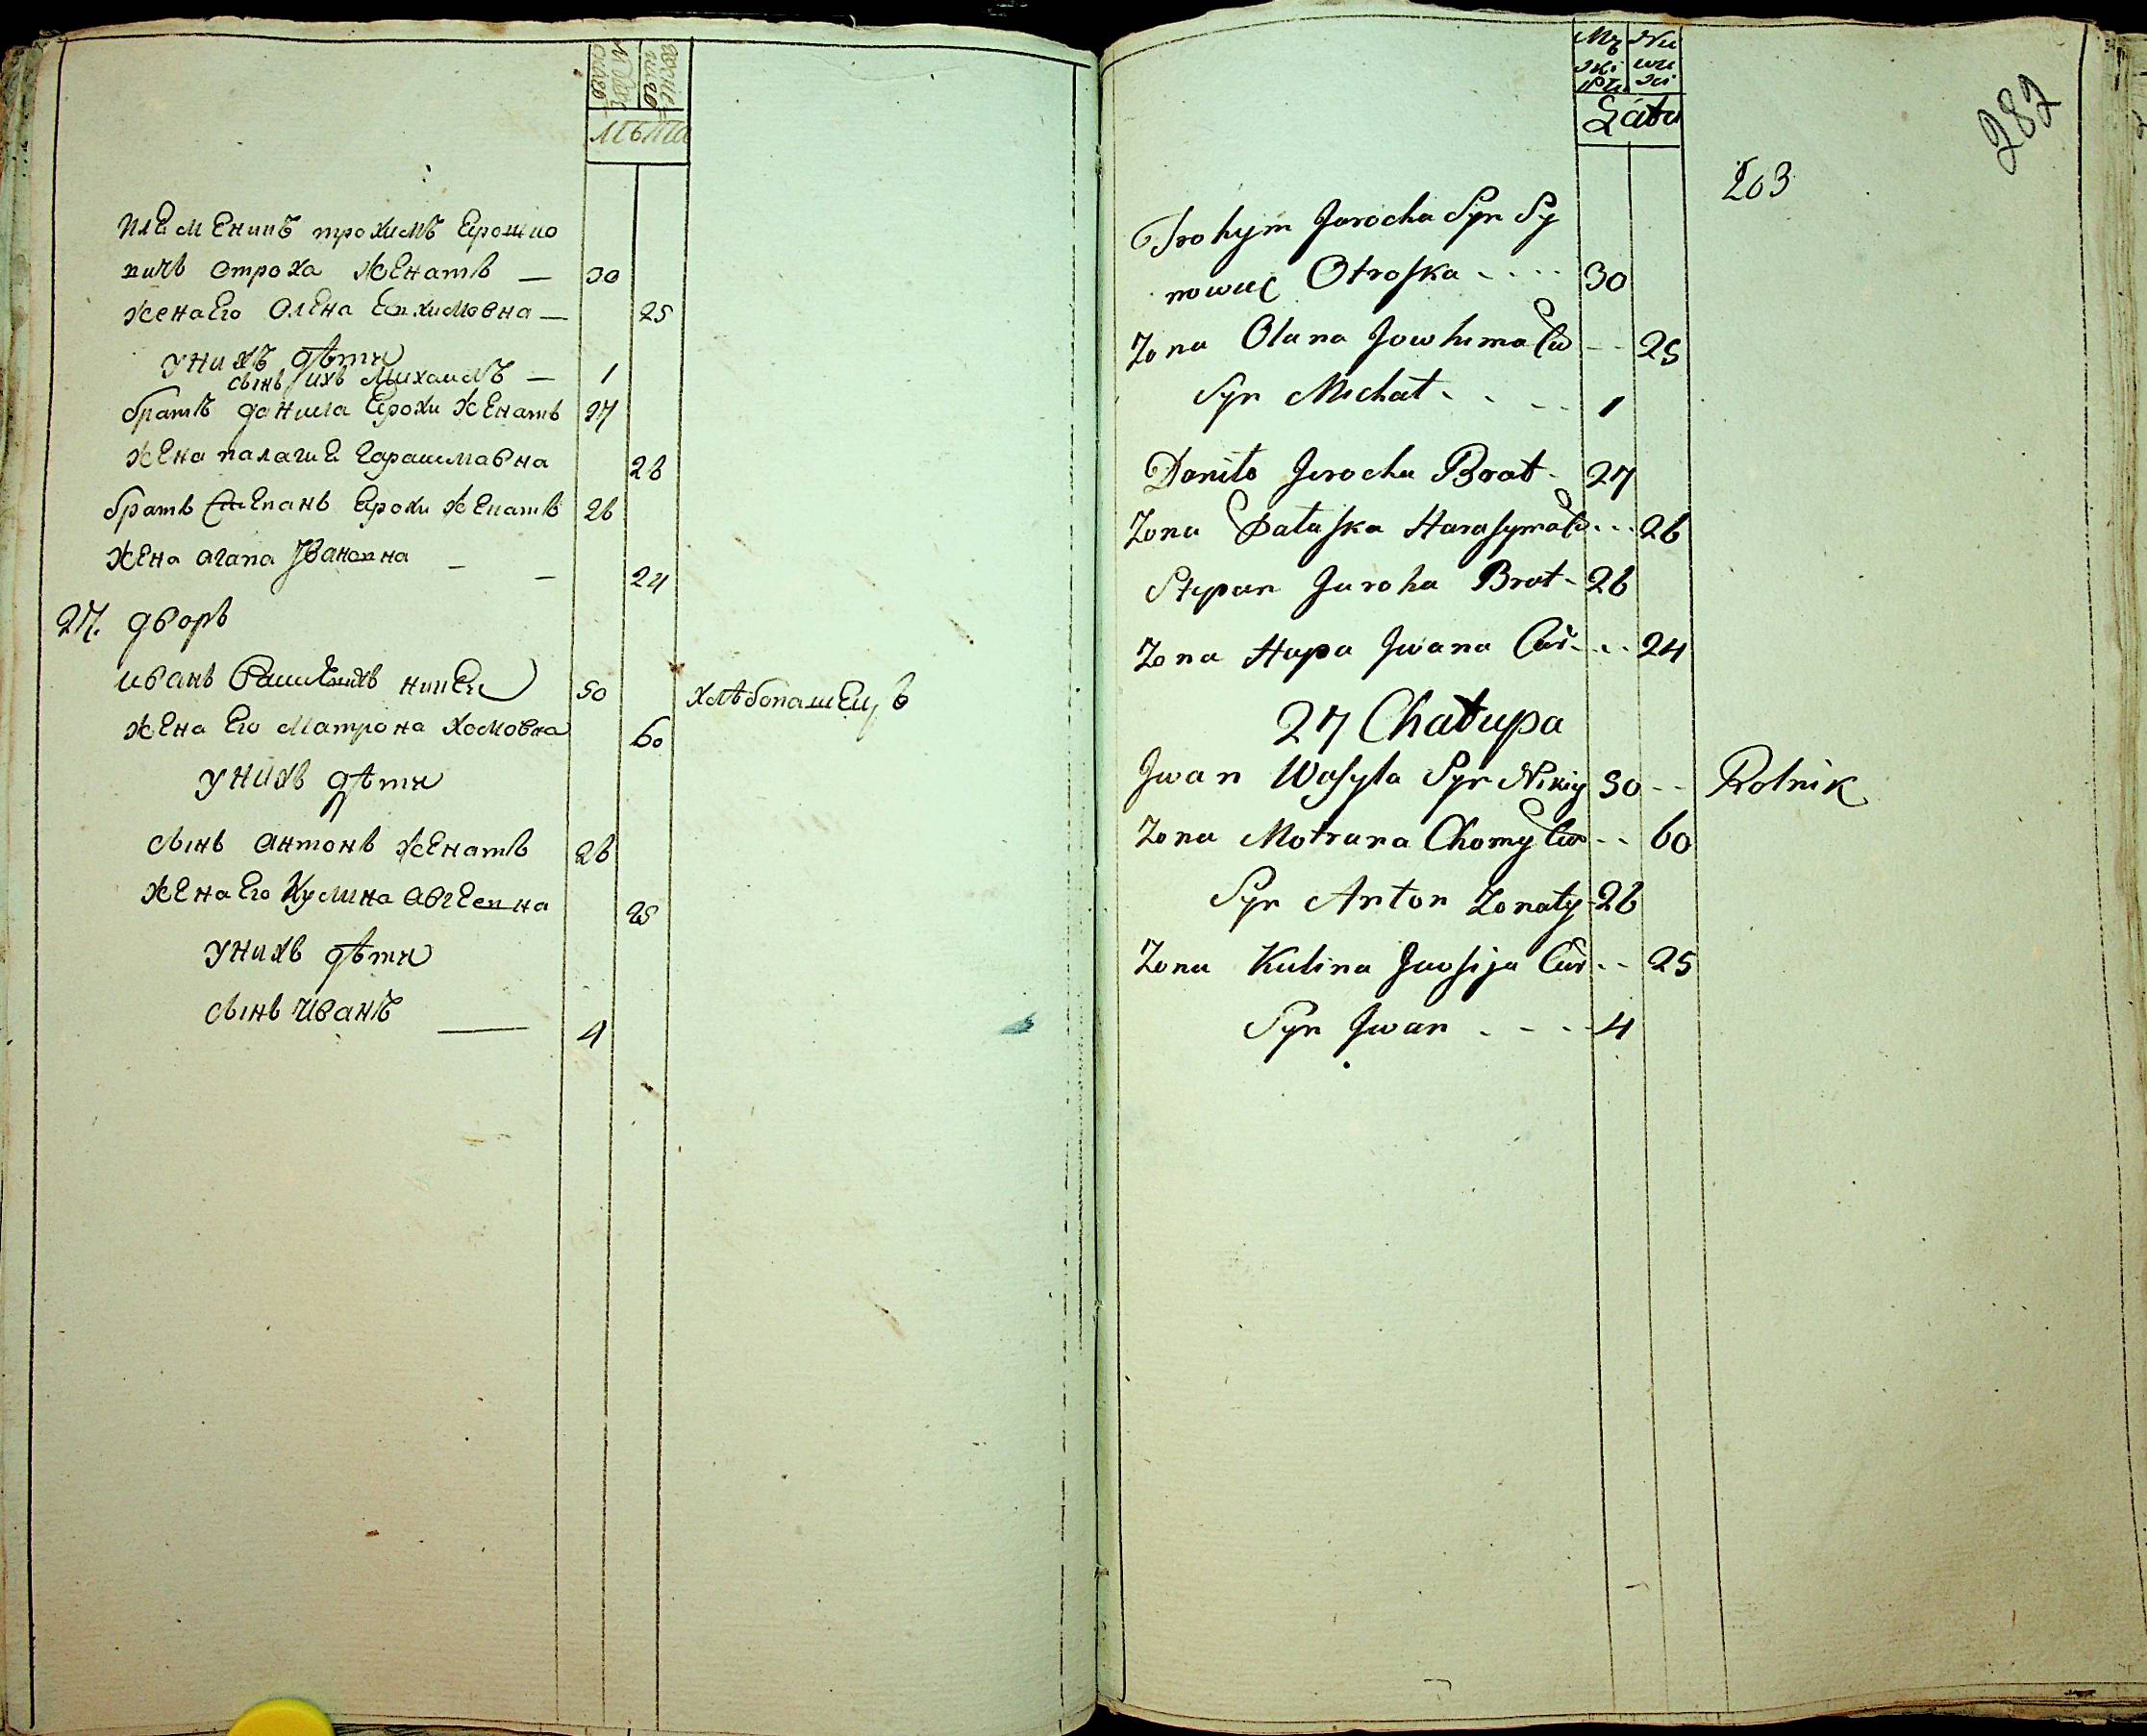 мужеска
женска
лѣта
племеникъ трохимъ Ерошко
вичъ отроха женатъ — 30
жена Его Олена Евхимовна — 25
У нихъ дѣти
сынъ ихъ Михаилъ — 1
братъ данила Ерохи женатъ 27
жена палагиѣ Гарашмавна 26
братъ Степанъ Ерохи женатъ 26
жена агапа Ивановна — — 24
27. дворъ
иванъ Василихъ никеи 50 хлѣбопашецъ
жена Его Матрона Хомовна 60
У нихъ дѣти
сынъ антонъ женатъ 26
жена Его Кулина Авгеевна 25
У нихъ дѣти
сынъ Иванъ — 4
287
203
Lata
Trohym Jarocha Syn Sy
nowiec Otroska 30
Zona Olana Jowhima Cur 25
Syn Michał 1
Danilo Jerocha Brat 27
Zona Pałaska Harasyma Cur 26
Stepan Jaroha Brat 26
Zona Hapa Jwana Cur 24
27 Chałupa
Jwan Wasyla Syn Nikiy 50 Rolnik
Zona Motruna Chomy Cur 60
Syn Anton Zonaty 26
Zona Kulina Jawsija Cur 25
Syn Jwan 4